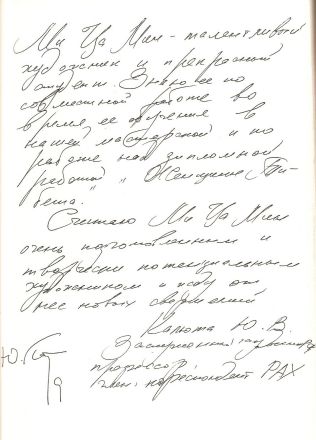 Ми Ца Мин - талантливый
художник и прекрасный
студент. Знаю ее по
совместной работе во
время ее обучения в
нашей мастерской и по
работе над дипломной
работой „Женщины Ти-
бета".
Считаю Ми Ца Мин
очень подготовленным и
творчески потенциальным
художником и жду от
нее новых свершений
Калюта Ю. В.
Заслуженный художник
профессор
член. корреспондент РАХ